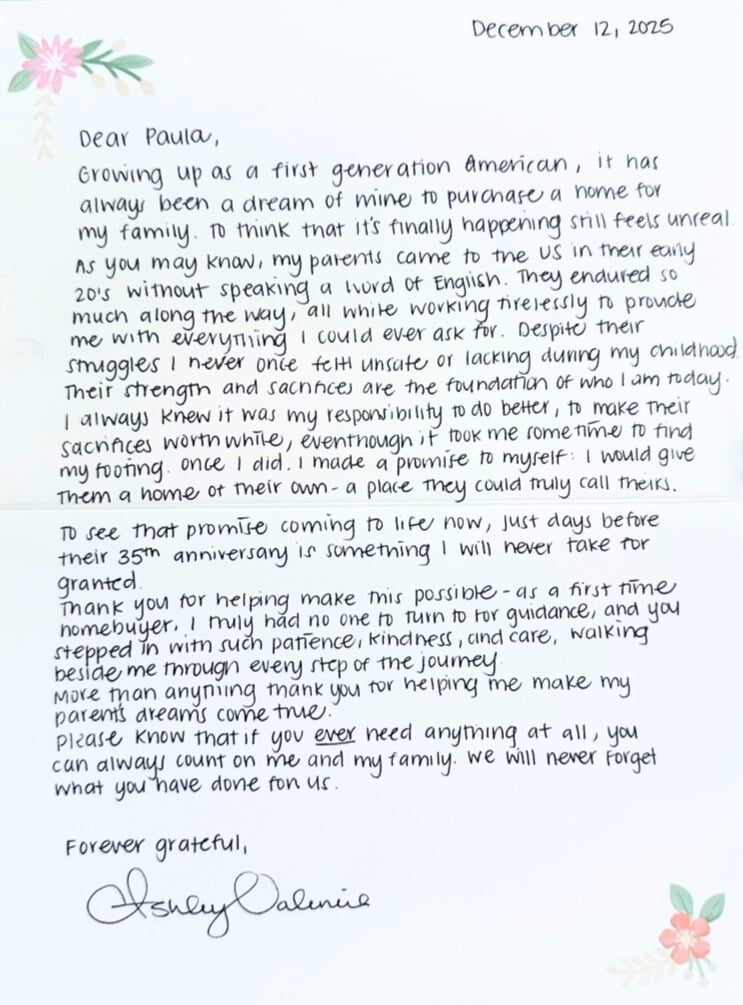 December 12, 2025
Dear Paula,
Growing up as a first generation American, it has
always been a dream of mine to purchase a home for
my family. To think that it's finally happening still feels unreal.
As you may know, my parents came to the US in their early
20's without speaking a word of English. They endured so
much along the way, all while working tirelessly to provide
me with everything I could ever ask for. Despite their
struggles I never once felt unsafe or lacking during my childhood.
Their strength and sacrifices are the foundation of who I am today.
I always knew it was my responsibility to do better, to make their
sacrifices worthwhile, eventhough it took me some time to find
my footing. Once I did, I made a promise to myself: I would give
them a home of their own - a place they could truly call theirs.
To see that promise coming to life now, just days before
their 35th anniversary is something I will never take for
granted.
Thank you for helping make this possible - as a first time
homebuyer, I truly had no one to turn to for guidance, and you
stepped in with such patience, kindness, and care, walking
beside me through every step of the journey.
More than anything thank you for helping me make my
parents dreams come true.
Please know that if you ever need anything at all, you
can always count on me and my family. We will never forget
what you have done for us.
Forever grateful,
Ashley